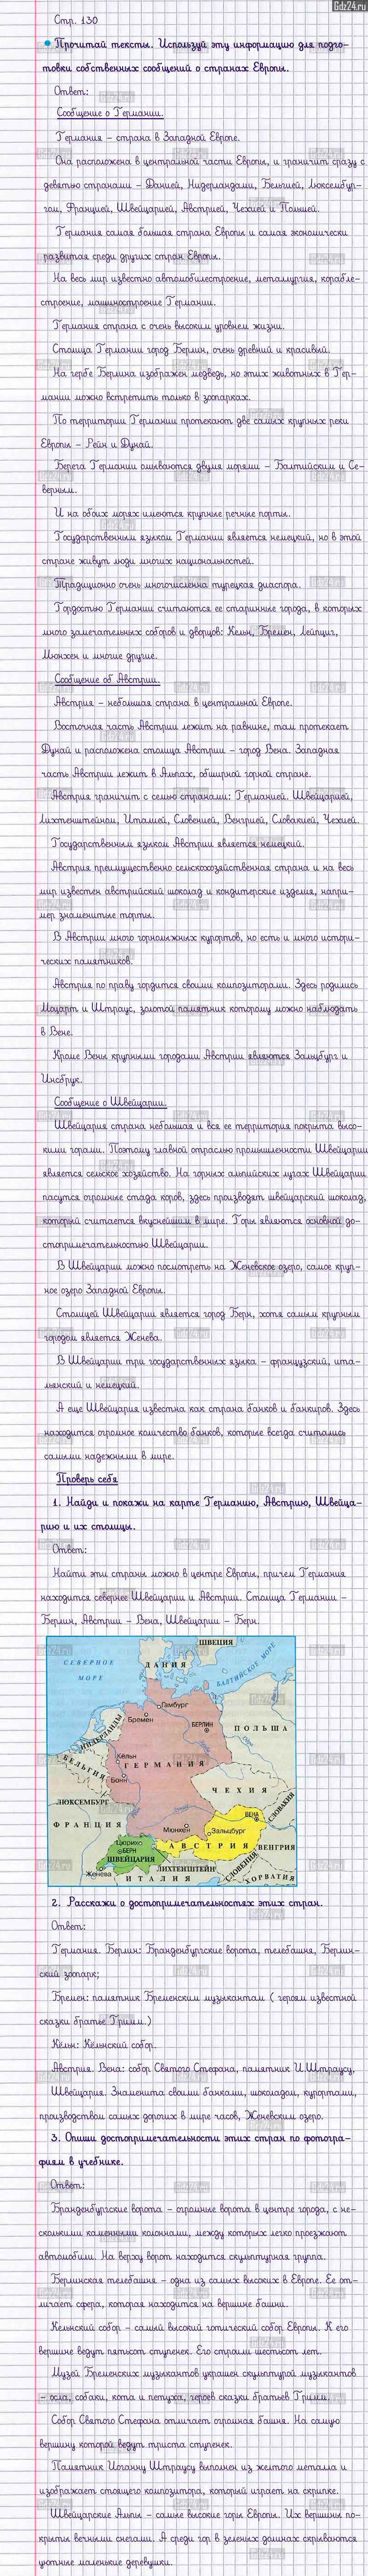 Gdz24.ru
Стр. 130
Прочитай тексты. Используй эту информацию для подго-
товки собственных сообщений о странах Европы.
Ответ:
Сообщение о Германии.
Германия – страна в Западной Европе.
Она расположена в центральной части Европы, и граничит сразу с
девятью странами – Данией, Нидерландами, Бельгией, Люксембур-
гом, Францией, Швейцарией, Австрией, Чехией и Польшей.
Германия самая большая страна Европы и самая экономически
развитая среди других стран Европы.
На весь мир известно автомобилестроение, металлургия, корабле-
строение, машиностроение Германии.
Германия страна с очень высоким уровнем жизни.
Столица Германии город Берлин, очень древний и красивый.
На гербе Берлина изображен медведь, но этих животных в Гер-
мании можно встретить только в зоопарках.
По территории Германии протекают две самых крупных реки
Европы – Рейн и Дунай.
Берега Германии омываются двумя морями – Балтийским и Се-
верным.
И на обоих морях имеются крупные речные порты.
Государственным языком Германии является немецкий, но в этой
стране живут люди многих национальностей.
Традиционно очень многочисленна турецкая диаспора.
Гордостью Германии считаются ее старинные города, в которых
много замечательных соборов и дворцов: Кельн, Бремен, Лейпциг,
Мюнхен и многие другие.
Сообщение об Австрии.
Австрия – небольшая страна в центральной Европе.
Восточная часть Австрии лежит на равнине, там протекает
Дунай и расположена столица Австрии – город Вена. Западная
часть Австрии лежит в Альпах, обширной горной стране.
Австрия граничит с семью странами: Германией. Швейцарией,
Лихтенштейном, Италией, Словенией, Венгрией, Словакией, Чехией.
Государственным языком Австрии является немецкий.
Австрия преимущественно сельскохозяйственная страна и на весь
мир известен австрийский шоколад и кондитерские изделия, напри-
мер знаменитые торты.
В Австрии много горнолыжных курортов, но есть и много истори-
ческих памятников.
Австрия по праву гордится своими композиторами. Здесь родились
Моцарт и Штраус, золотой памятник которому можно наблюдать
в Вене.
Кроме Вены крупными городами Австрии являются Зальцбург и
Инсбрук.
Сообщение о Швейцарии.
Швейцария страна небольшая и вся ее территория покрыта высо-
кими горами. Поэтому главной отраслью промышленности Швейцарии
является сельское хозяйство. На горных альпийских лугах Швейцарии
пасутся огромные стада коров, здесь производят швейцарский шоколад,
который считается вкуснейшим в мире. Горы являются основной до-
стопримечательностью Швейцарии.
В Швейцарии можно посмотреть на Женевское озеро, самое круп-
ное озеро Западной Европы.
Столицей Швейцарии является город Берн, хотя самым крупным
городом является Женева.
В Швейцарии три государственных языка – французский, ита-
льянский и немецкий.
А еще Швейцария известна как страна банков и банкиров. Здесь
находится огромное количество банков, которые всегда считались
самыми надежными в мире.
Проверь себя
1. Найди и покажи на карте Германию, Австрию, Швейца-
рию и их столицы.
Ответ:
Найти эти страны можно в центре Европы, причем Германия
находится севернее Швейцарии и Австрии. Столица Германии –
Берлин, Австрии – Вена, Швейцарии – Берн.
ШВЕЦИЯ
СЕВЕРНОЕ
МОРЕ
ДАНИЯ
БАЛТИЙСКОЕ МОРЕ
Гамбург
Бремен
БЕРЛИН
НИДЕРЛАНДЫ
ПОЛЬША
Кёльн
ГЕРМАНИЯ
БЕЛЬГИЯ
Бонн
ЧЕХИЯ
ЛЮКСЕМБУРГ
СЛОВАКИЯ
ФРАНЦИЯ
Мюнхен
ВЕНА
Зальцбург
Цюрих
БЕРН
АВСТРИЯ
ВЕНГРИЯ
ШВЕЙЦАРИЯ
ЛИХТЕНШТЕЙН
Женева
ИТАЛИЯ
СЛОВЕНИЯ
ХОРВАТИЯ
2. Расскажи о достопримечательностях этих стран.
Ответ:
Германия. Берлин: Бранденбургские ворота, телебашня, Берлин-
ский зоопарк;
Бремен: памятник Бременским музыкантам ( героям известной
сказки братье Гримм.)
Кёльн: Кёльнский собор.
Австрия. Вена: собор Святого Стефана, памятник И.Штраусу,
Швейцария. Знаменита своими банками, шоколадом, курортами,
производством самых дорогих в мире часов, Женевским озеро.
3. Опиши достопримечательности этих стран по фотогра-
фиям в учебнике.
Ответ:
Бранденбургские ворота – огромные ворота в центре города, с не-
сколькими каменными колоннами, между которых легко проезжают
автомобили. На верху ворот находится скульптурная группа.
Берлинская телебашня – одна из самых высоких в Европе. Ее от-
личает сфера, которая находится на вершине башни.
Кельнский собор – самый высокий готический собор Европы. К его
вершине ведут пятьсот ступенек. Его строили шестьсот лет.
Музей Бременских музыкантов украшен скульптурой музыкантов
– осла, собаки, кота и петуха, героев сказки братьев Гримм.
Собор Святого Стефана отличает огромная башня. На самую
вершину которой ведут триста ступенек.
Памятник Иоганну Штраусу выполнен из желтого металла и
изображает стоящего композитора, который играет на скрипке.
Швейцарские Альпы – самые высокие горы Европы. Их вершины по-
крыты вечными снегами. А среди гор в зеленых долинах скрываются
уютные маленькие деревушки.